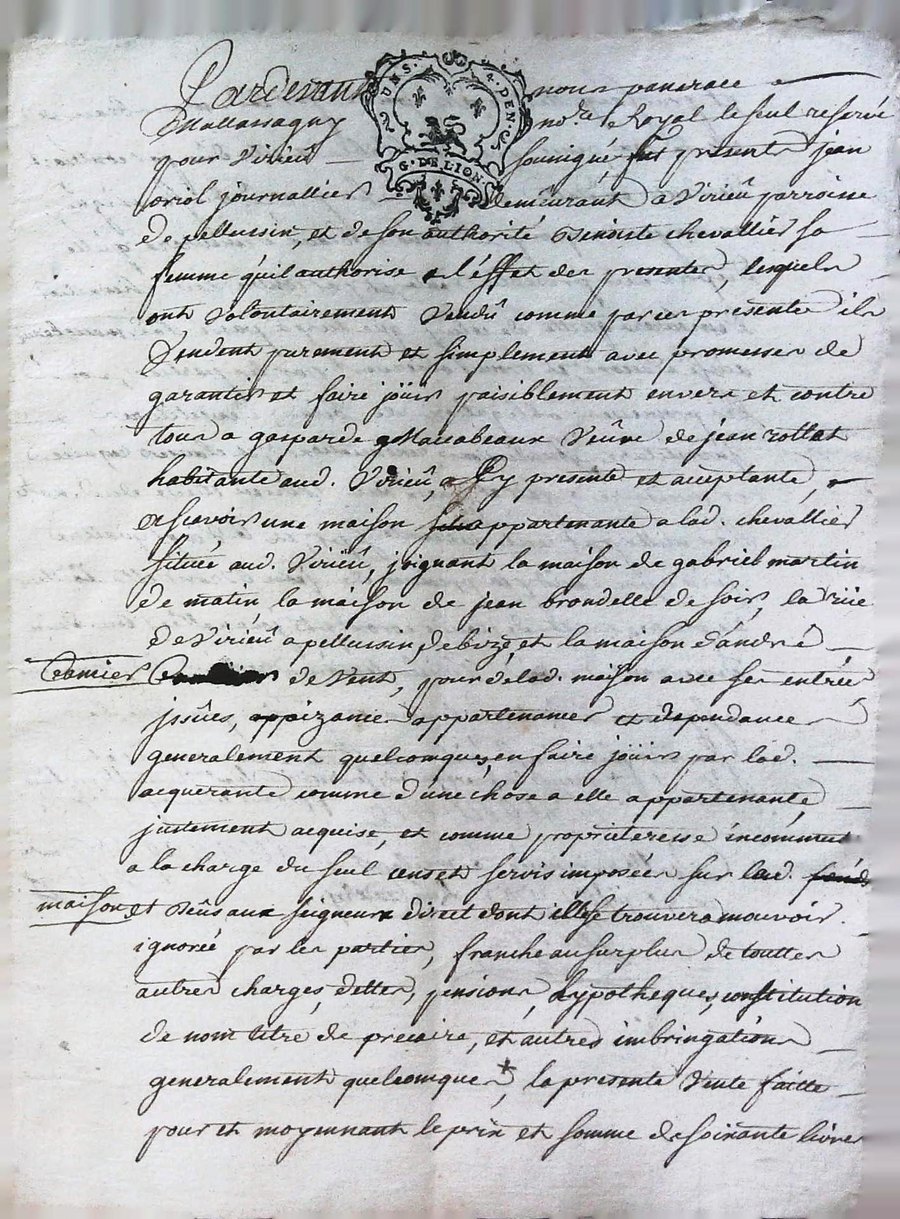 Pardevant nous pancrace
Mallassagny no.re Royal le seul reservé
pour Virieû soussigné, fut present jean
oriol journallier demeurant a Virieû parroisse
de pellussin, et de son authorité Benoiste chevallier sa
femme qu'il authorise a l'éffet des presentes, lesquels
ont volontairement vendû comme par ces presentes ils
vendent purement et simplement avec promesses de
garantir et faire jöuir paisiblement envers et contre
tous a gasparde Maccabeaux veûve de jean rollat
habitante aud. Virieû, a Cy presente et aceptante,
a scavoir une maison appartenante a lad. chevallier
située aud. Virieû, joignant la maison de gabriel martin
de matin la maison de jean brondelle de soir, la rüe
de Virieû a pellussin, de bize, et la maison d'andré
de vent, pour de lad. maison avec ses entrées
jssûes, appizances appartenances et dependances
generalement quelcomques, en faire jöuir par lad.
acquerante comme d'une chose a elle appartenante,
justement acquise, et comme proprieteresse incommut
a la charge du seul cens et servis imposés sur lad. fonds
maison et dûs aux seigneur direct dont elle se trouvera mouvoir
ignoré par les parties, franche au surplus de touttes
autres charges, dettes, pensions, hypotheques, constitution
de nom titre de precaire, et autres imbringations
generalement quelcomques, la presente vente faitte
pour et moyennant le prix et somme de soixante livres
UNS. 4. DEN.
G. DE LION